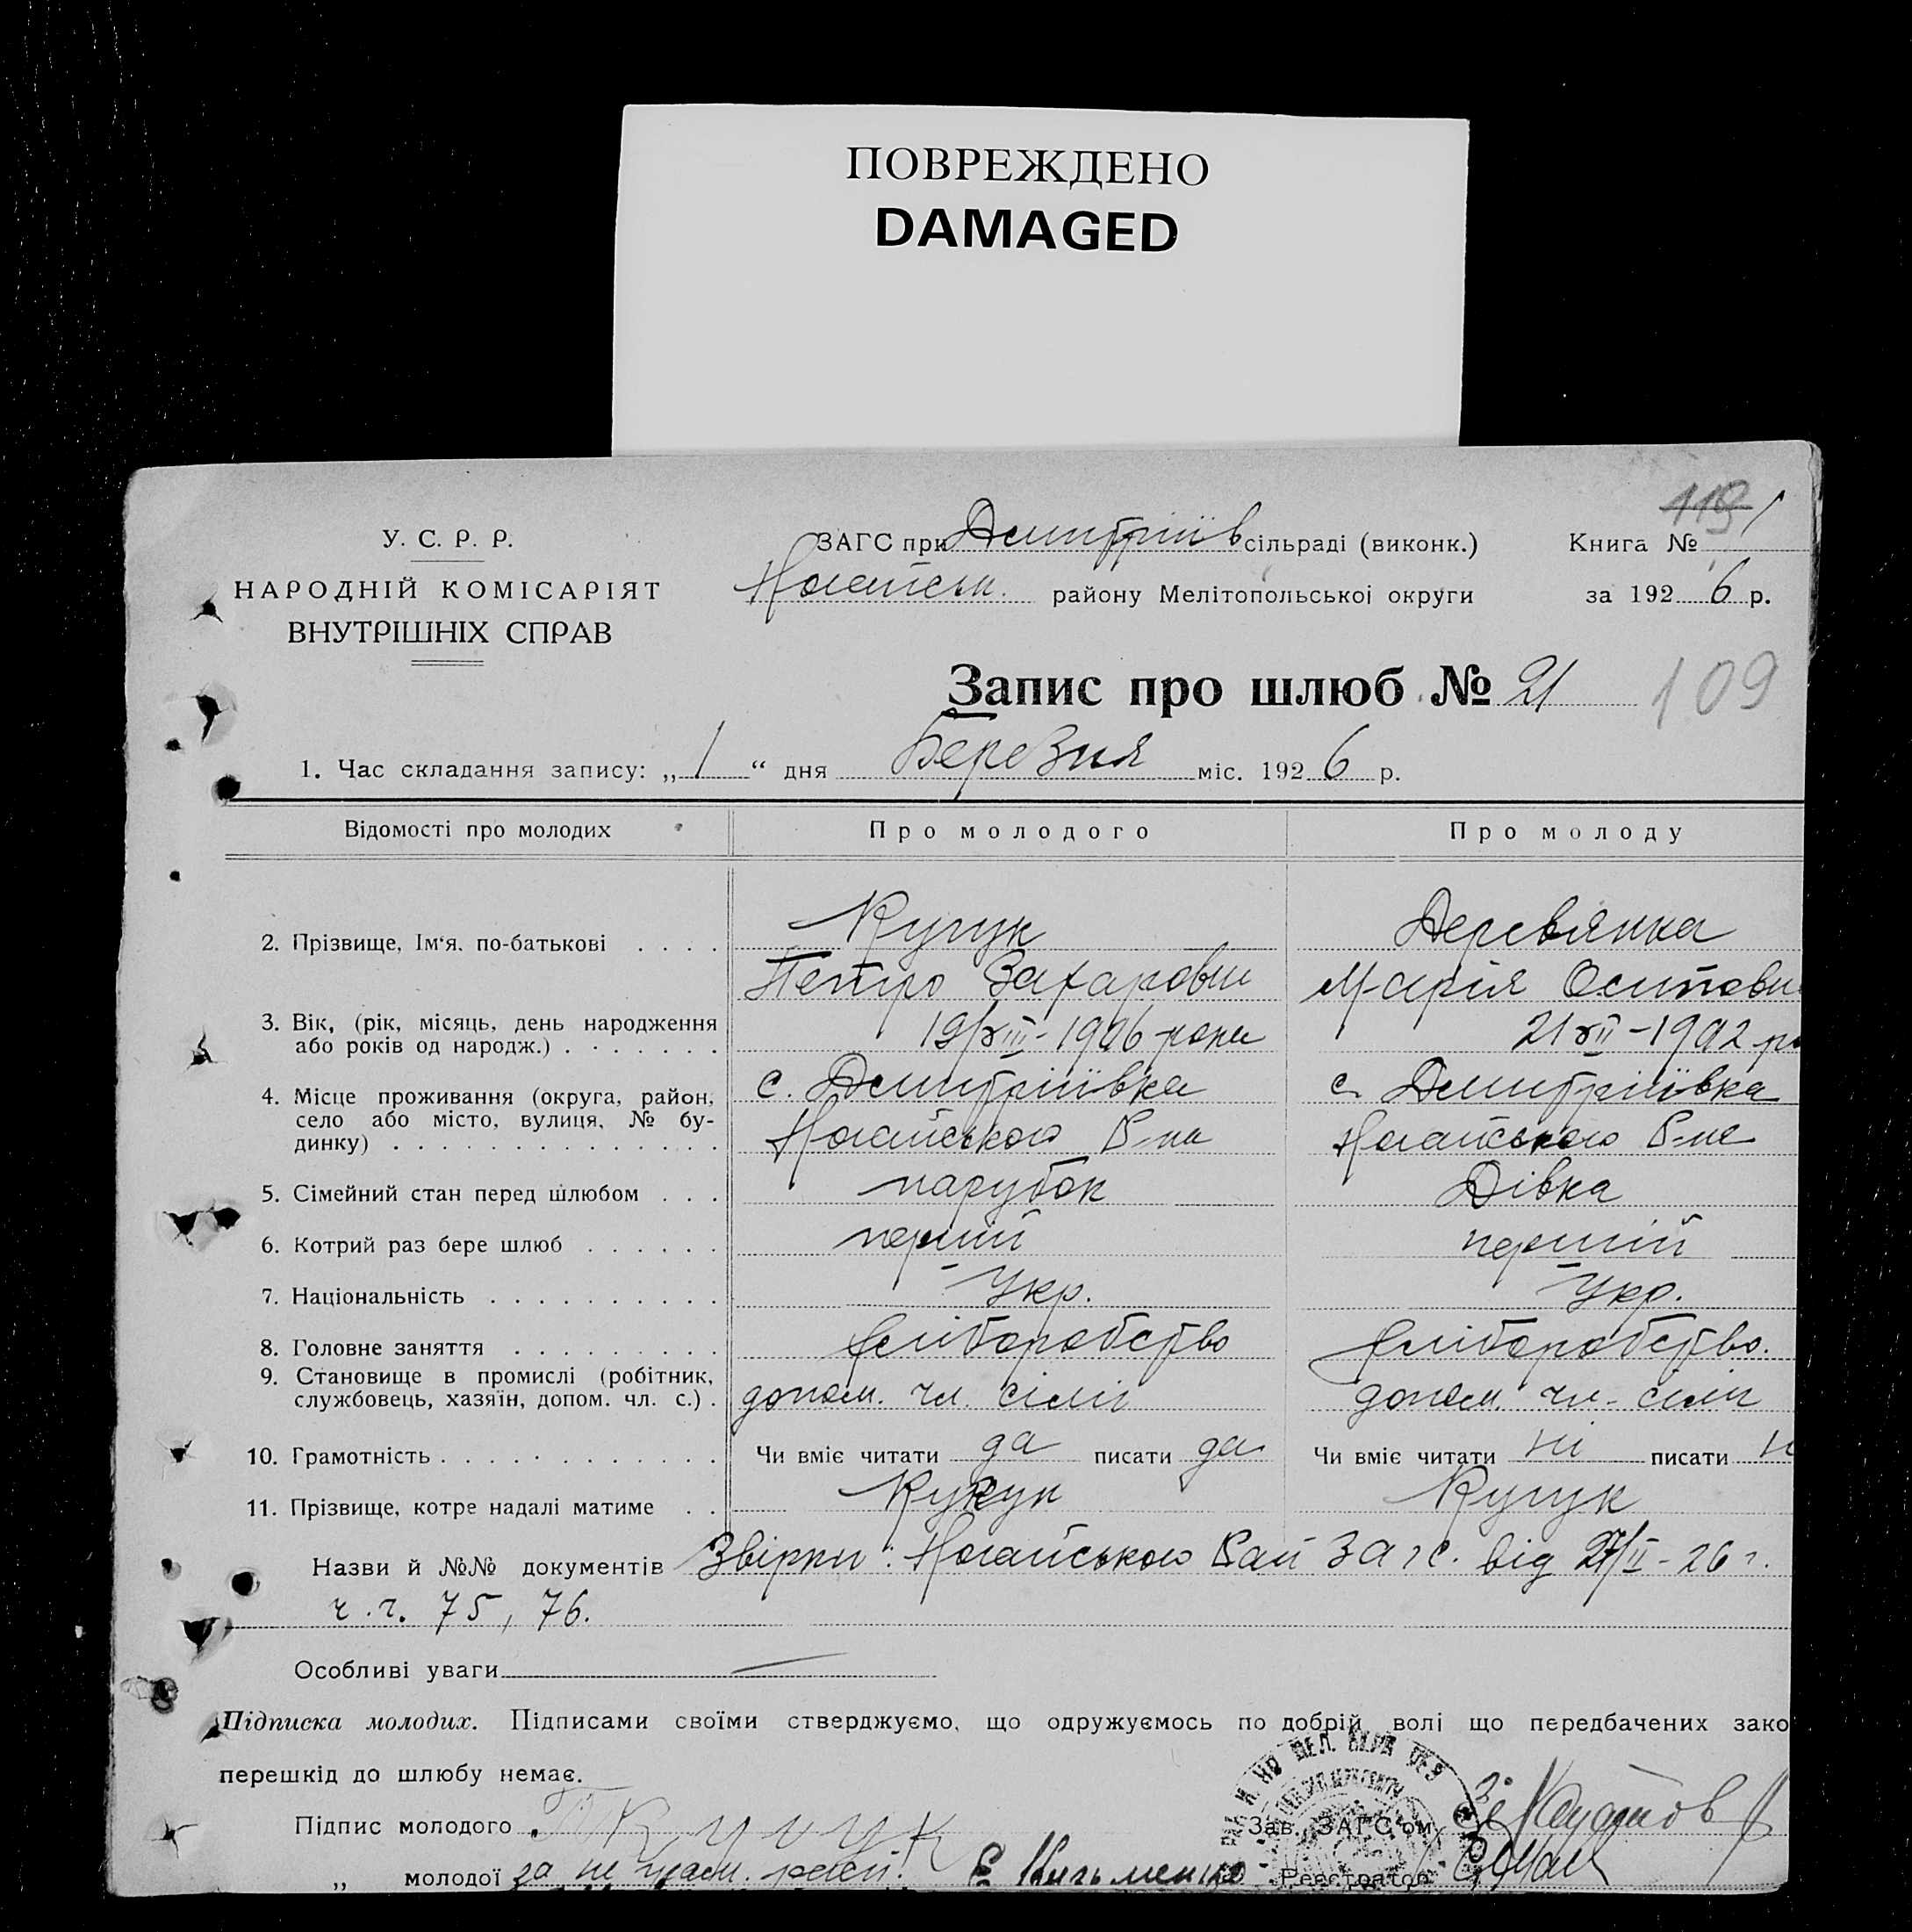 ПОВРЕЖДЕНО
DAMAGED
119 1
У. С. Р. Р.
НАРОДНІЙ КОМІСАРІЯТ
ВНУТРІШНІХ СПРАВ
ЗАГС при Дмитріїв сільраді (виконк.) Книга №
Ногайськ. району Мелітопольської округи за 1926 р.
Запис про шлюб № 21 109
1. Час складання запису: „1“ дня Березня міс. 1926 р.
Відомості про молодих Про молодого Про молоду
2. Прізвище, Ім‘я, по-батькові . . . . Кучук Деревянка
Петро Захарови Марія Осиповн
3. Вік, (рік, місяць, день народження
або років од народж.) . . . . . . . 19/VIII-1906 роки 21 VII-1902 ро
4. Місце проживання (округа, район, с. Дмитріївка с. Дмитріївка
село або місто, вулиця, № бу-
динку) . . . . . . . . . . . . . . Ногайського Р-на Ногайського Р-на
5. Сімейний стан перед шлюбом . . . парубок Дівка
6. Котрий раз бере шлюб . . . . . . перший перший
7. Національність . . . . . . . . . . Укр. Укр.
8. Головне заняття . . . . . . . . . хліборобство хліборобство.
9. Становище в промислі (робітник,
службовець, хазяїн, допом. чл. с.) . допом. чл. сімї допом. чл. сімї
10. Грамотність . . . . . . . . . . . . Чи вміє читати да писати да Чи вміє читати ні писати н
11. Прізвище, котре надалі матиме . . Кучук Кучук
Назви й №№ документів Звірки: Ногайського Рай ЗАГС. від 27/II-26 г.
ч.ч. 75, 76.
Особливі уваги —
Підписка молодих. Підписами своїми стверджуємо, що одружуємось по добрій волі що передбачених зако
перешкід до шлюбу немає.
Підпис молодого П Кучук Зав. ЗАГС‘ом
„ молодої за не грам. Кузьменко Реєстратор